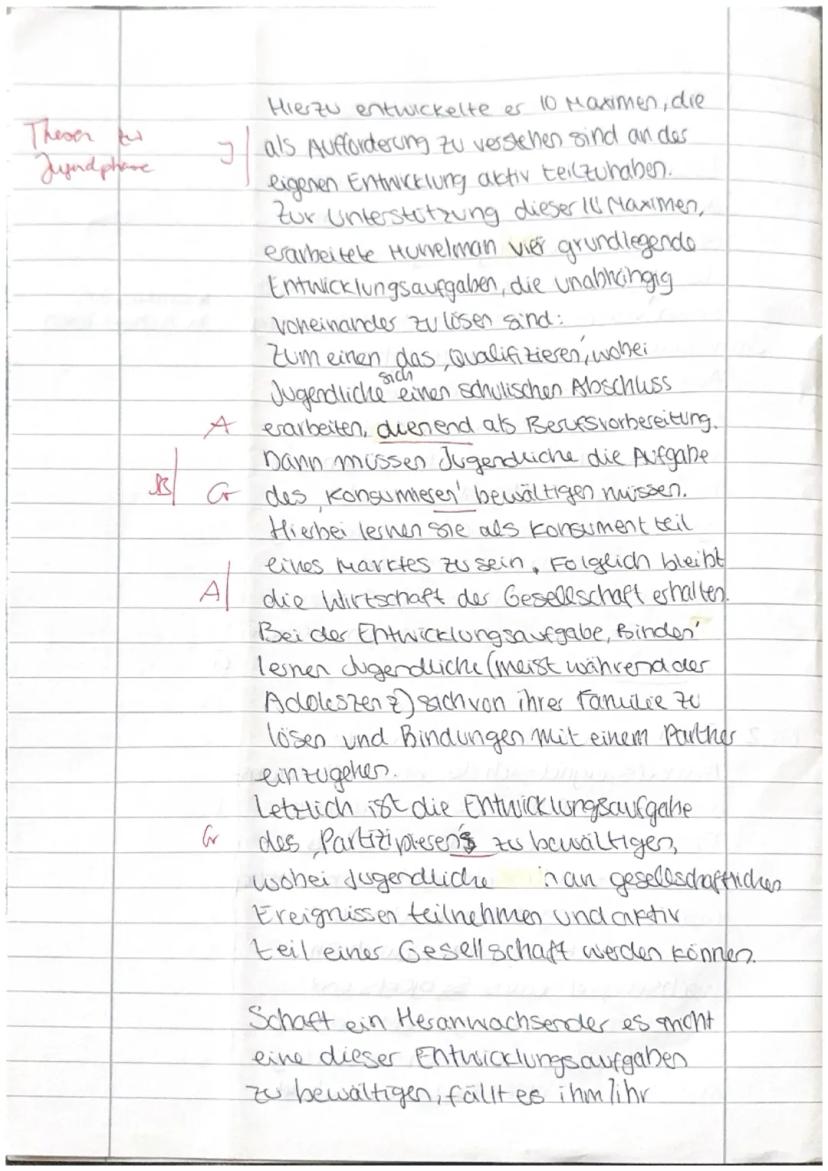 Hierzu entwickelte er 10 Maximen, die
Thesen zur
Jugendphase
J
als Aufforderung zu verstehen sind an der
eigenen Entwicklung aktiv teilzuhaben.
Zur Unterstützung dieser 10 Maximen,
erarbeitete Hurrelman vier grundlegende
Entwicklungsaufgaben, die unabhängig
voneinander zu lösen sind:
Zum einen das ,Qualifizieren', wobei
Jugendliche sich einen schulischen Abschluss
A erarbeiten, dienend als Berufsvorbereitung.
Dann müssen Jugendliche die Aufgabe
G des ,Konsumieren' bewältigen müssen.
Hierbei lernen sie als Konsument teil
eines Marktes zu sein. Folglich bleibt
A die Wirtschaft der Gesellschaft erhalten.
Bei der Entwicklungsaufgabe ,Binden'
lernen Jugendliche (meist während der
Adoleszenz) sich von ihrer Familie zu
lösen und Bindungen mit einem Partner
einzugehen.
Letztlich ist die Entwicklungsaufgabe
Gr des ,Partizipieren's zu bewältigen,
wobei Jugendliche an gesellschaftlichen
Ereignissen teilnehmen und aktiv
teil einer Gesellschaft werden können.
Schaft ein Heranwachsender es nicht
eine dieser Entwicklungsaufgaben
zu bewältigen, fällt es ihm/ihr